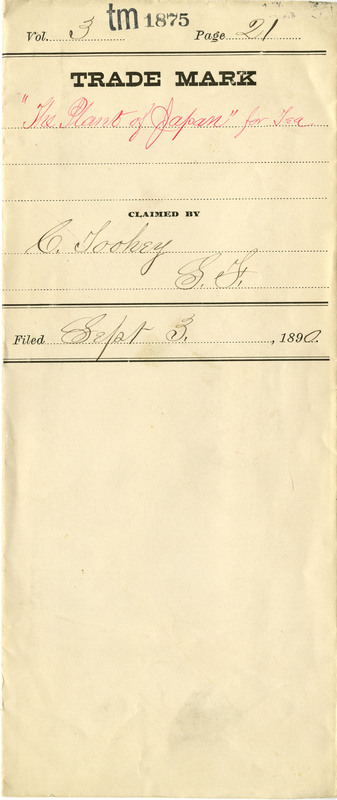 Vol. 3 tm 1875 Page 21
TRADE MARK
"The Plant of Japan" for Tea
CLAIMED BY
C. Toohey
S. F.
Filed Sept 3. , 1890.